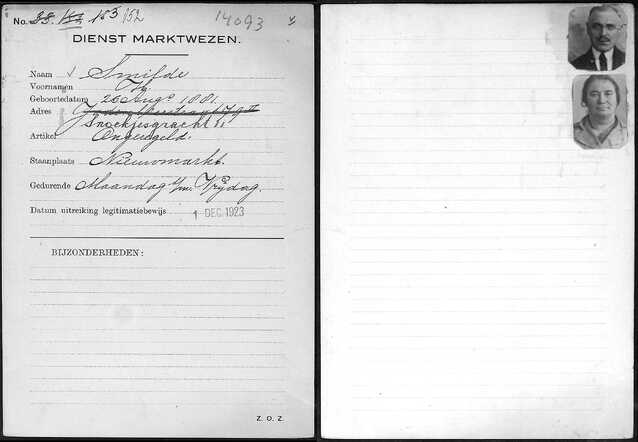 No. 38. 152 153 152
14093
DIENST MARKTWEZEN.
Naam Smilde
Voornamen Th.
Geboortedatum 20 Aug. 1881.
Adres
Snoekjesgracht
Artikel Ongeregeld.
Staanplaats Nieuwmarkt.
Gedurende Maandag t/m Vrijdag.
Datum uitreiking legitimatiebewijs 1 DEC. 1923
BIJZONDERHEDEN:
Z. O. Z.